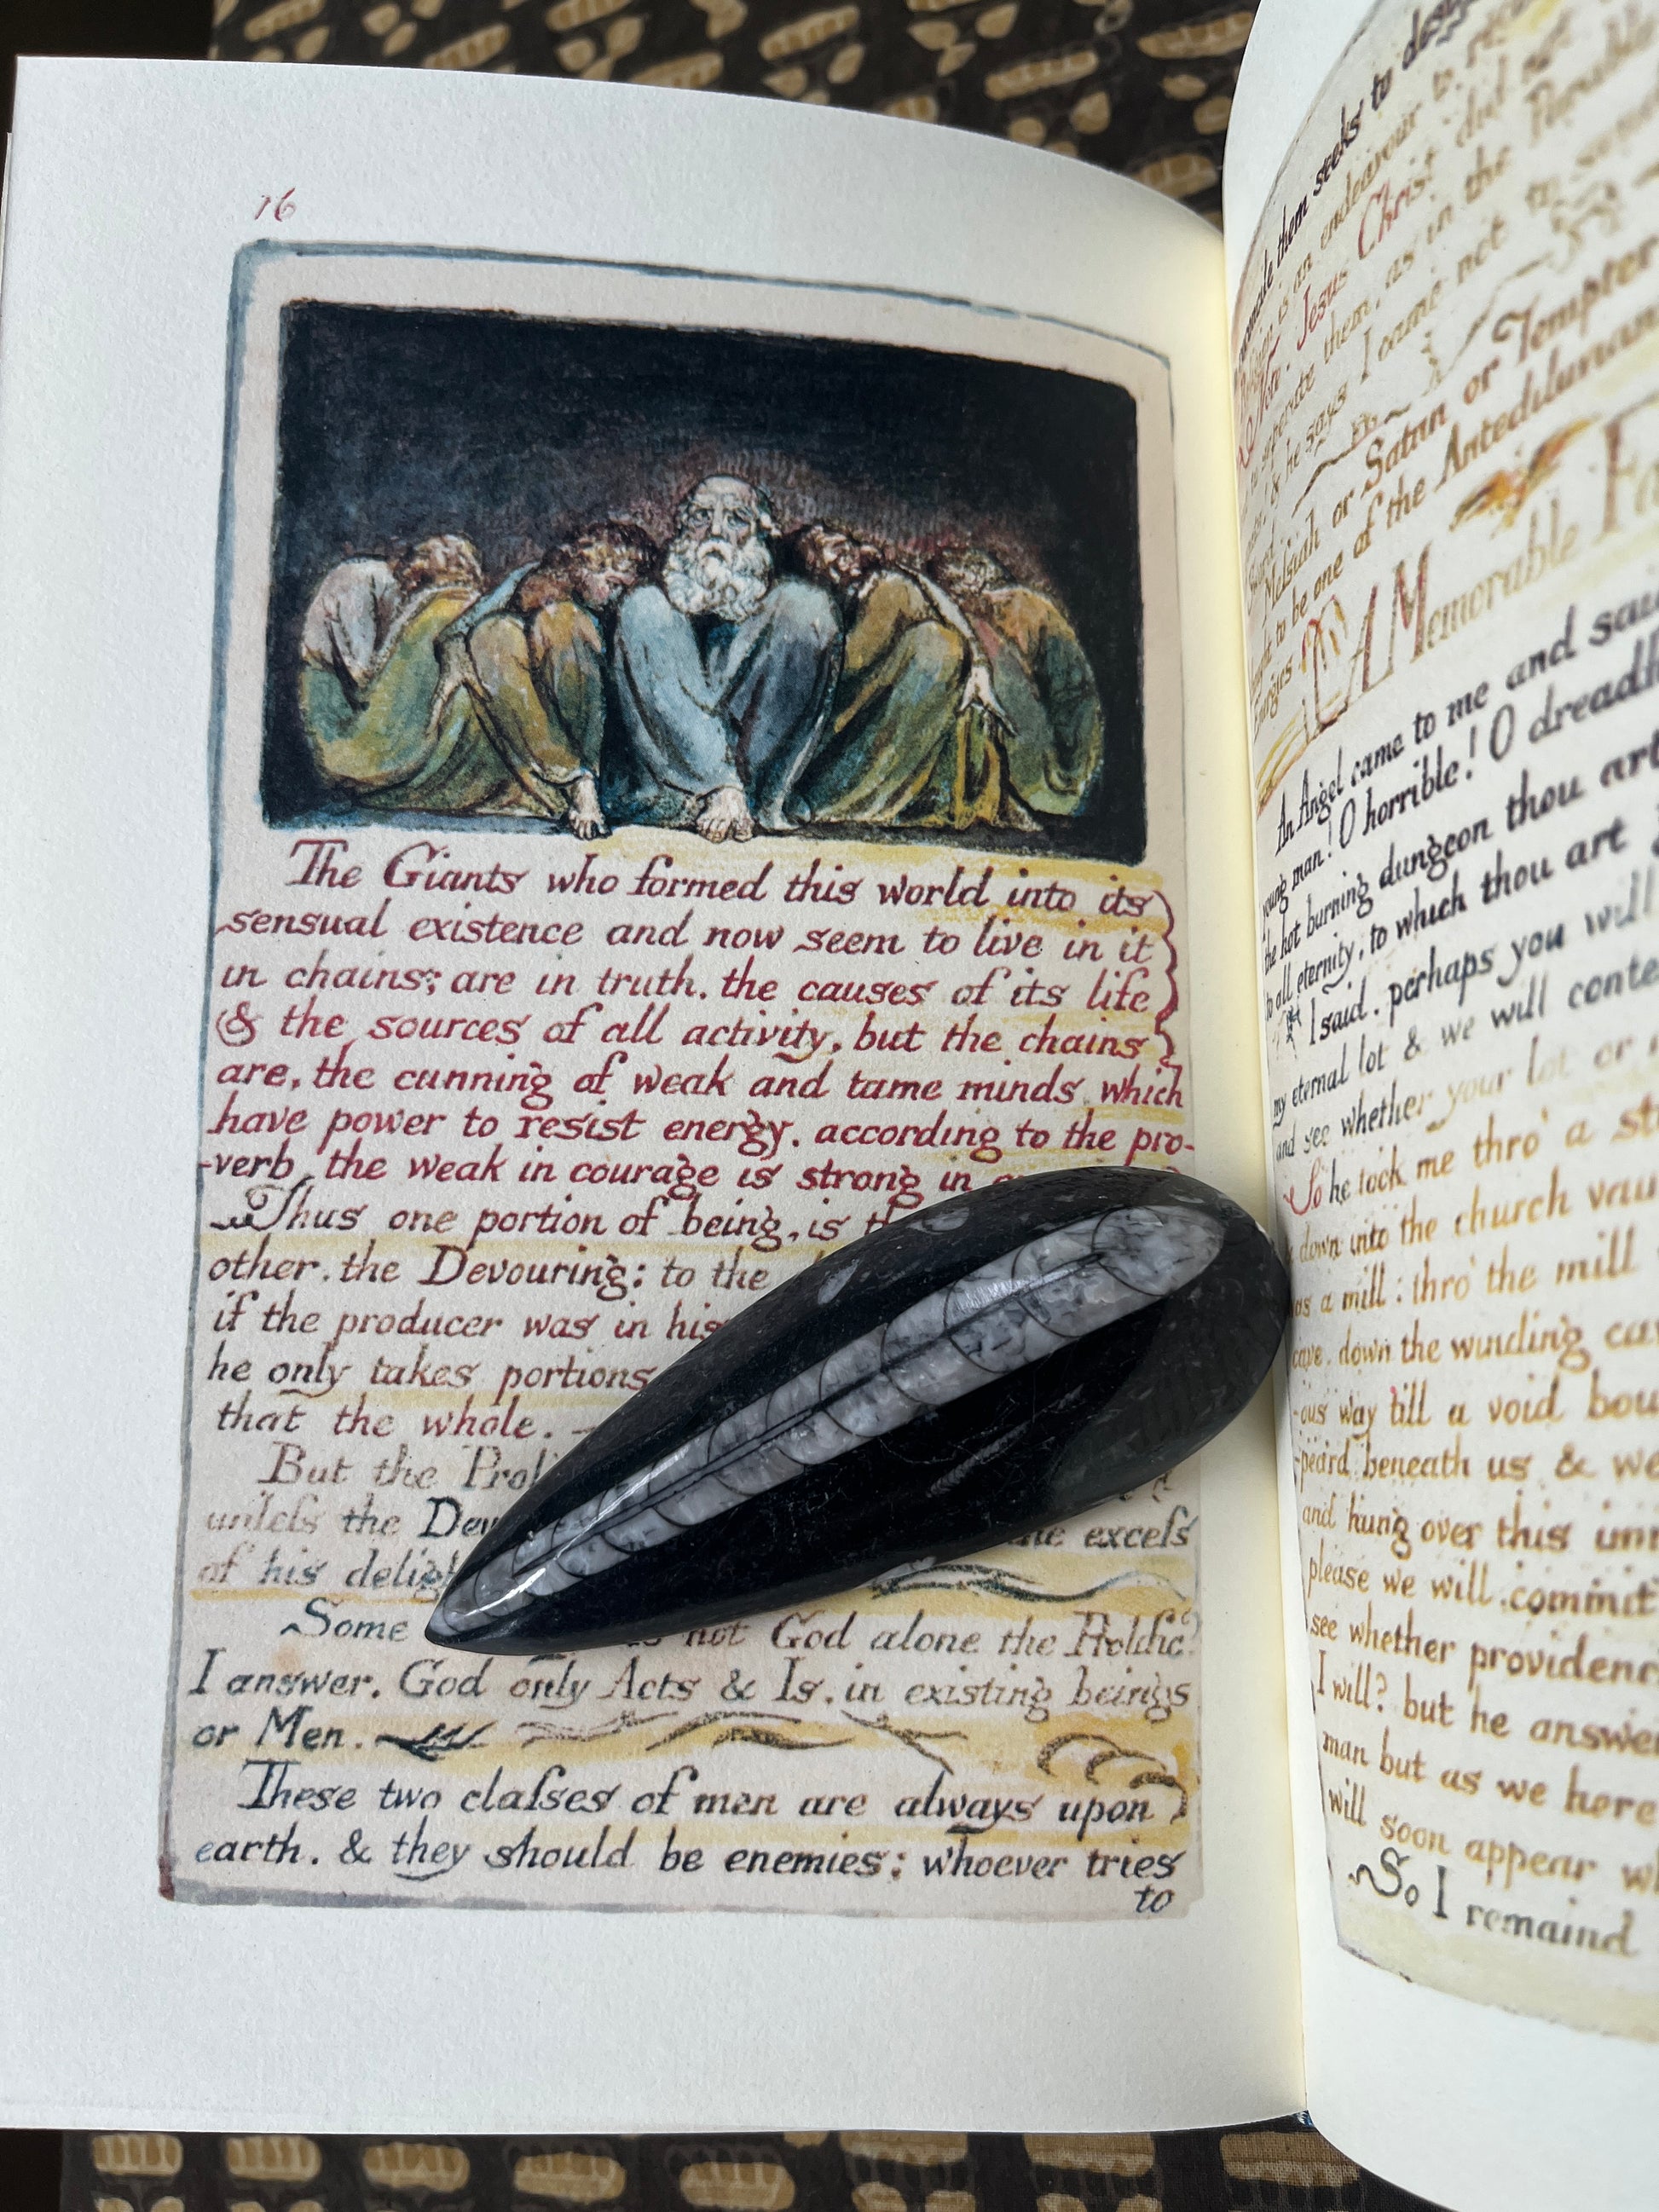 16
The Giants who formed this world into its
sensual existence and now seem to live in it
in chains; are in truth. the causes of its life
& the sources of all activity, but the chains
are, the cunning of weak and tame minds. which
have power to resist energy. according to the pro-
-verb, the weak in courage is strong in
Thus one portion of being, is
other. the Devouring: to the
if the producer was in his
he only takes portions
that the whole.
But the
unleſs the
excefs
of his
Some not God alone the Prolific?
I answer. God only Acts & Is. in existing beings
or Men.
These two claſses of men are always upon
earth. & they should be enemies; whoever tries
to
them seeks to
is an endeavour to
Note. Jesus Christ did not
them, as in the Parable
he says I came not to
Meſsiah or Satan or Tempter
to be one of the Antediluvians
A Memorable
An Angel came to me and said
young man! O horrible! O dreadful
the hot burning dungeon thou art
to all eternity, to which thou art
I said. perhaps you will
my eternal lot & we will
and see whether your lot or
So he took me thro' a
down into the church
as a mill: thro' the mill
cave. down the winding
-ous way till a void
-peard beneath us & we
and hung over this
please we will commit
see whether
I will? but he
man but as we here
will soon appear
So I remaind